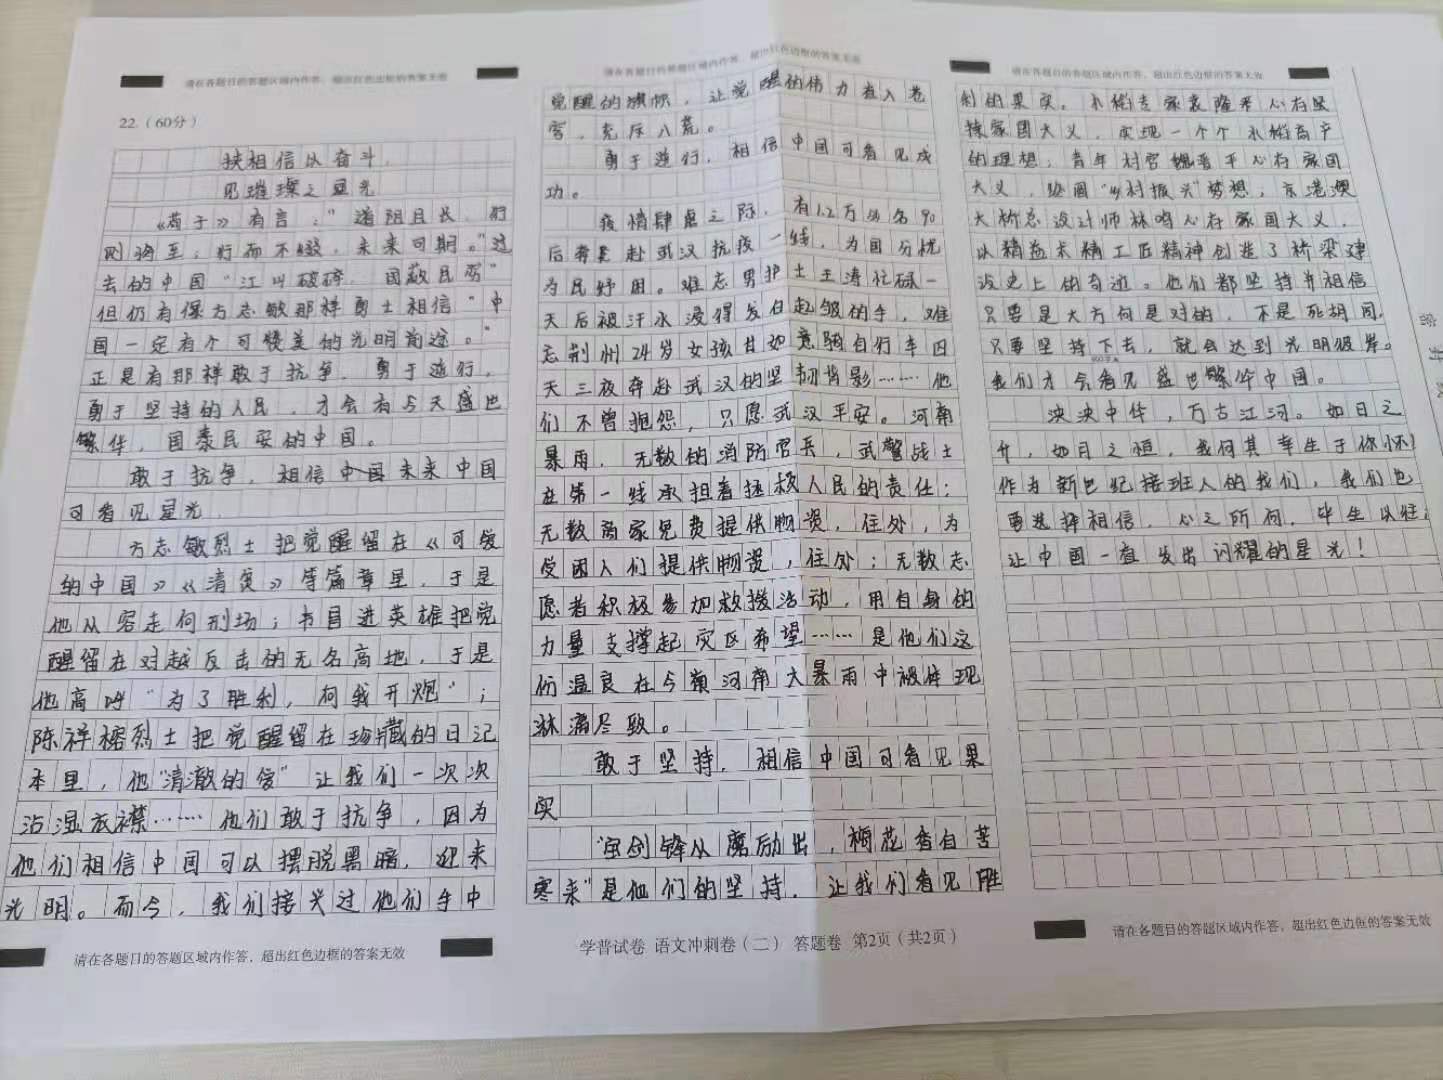 请在各题目的答题区域内作答，超出红色边框的答案无效
22.（60分）
挟相信以奋斗，
见璀璨之星光
《荀于》有言："道阻且长，行
则将至；行而不缀，未来可期。"过
去的中国"江山破碎，国敝民穷"
但仍有像方志敏那样勇士相信"中
国一定有个可赞美的光明前途。"
正是有那样敢于抗争，勇于逆行，
勇于坚持的人民，才会有今天盛世
繁华，国泰民安的中国。
敢于抗争，相信未来中国
可看见星光
方志敏烈士把觉醒留在《可爱
的中国》《清贫》等篇章里，于是
他从容走向刑场；书目进英雄把觉
醒留在对越反击的无名高地，于是
他高呼"为了胜利，向我开炮"；
陈祥榕烈士把觉醒留在珍藏的日记
本里，他"清澈的爱"让我们一次次
沾湿衣襟……他们敢于抗争，因为
他们相信中国可以摆脱黑暗，迎来
光明。而今，我们接过他们手中
请在各题目的答题区域内作答，超出红色边框的答案无效
请在各题目的答题区域内作答，超出红色边框的答案无效
觉醒的旗帜，让觉醒的伟力卷入苍
穹，充斥八荒。
勇于逆行，相信中国可看见成
功。
疫情肆虐之际，有1.2万余名90
后奔赴武汉抗疫一线，为国分忧
为民纾困。难忘男护士王涛忙碌一
天后被汗水浸得发白起皱的手，难
忘荆州24岁女孩甘如意骑自行车四
天三夜奔赴武汉的坚韧背影……他
们不曾抱怨，只愿武汉平安。河南
暴雨，无数的消防官兵，武警战士
在第一线承担着拯救人民的责任；
无数商家免费提供物资，住处，为
受困人们提供物资，住处；无数志
愿者积极参加救援活动，用自身的
力量支撑起灾区希望……是他们这
份温良在今领河南大暴雨中被体现
淋漓尽致。
敢于坚持，相信中国可看见果
实
"宝剑锋从磨励出，梅花香自苦
寒来"是他们的坚持，让我们看见胜
学普试卷 语文冲刺卷（二） 答题卷 第2页（共2页）
请在各题目的答题区域内作答，超出红色边框的答案无效
利的果实。水稻专家袁隆平心存坚
持家国大义，实现一个个水稻高产
的理想；青年村官魏晋平心存家国
大义，绘圆"乡村振兴"梦想；京港澳
大桥总设计师林鸣心存家国大义，
以精益术精工匠精神创造了桥梁建
设史上的奇迹。他们都坚持并相信
只要是大方向是对的，不是死胡同，
只要坚持下去，就会达到光明彼岸。
我们才会看见盛世繁华中国。
泱泱中华，万古江河。如日之
升，如月之恒，我何其幸生于你怀！
作为新世纪接班人的我们，我们也
要选择相信，心之所向，毕生以往；
让中国一直发出闪耀的星光！
请在各题目的答题区域内作答，超出红色边框的答案无效